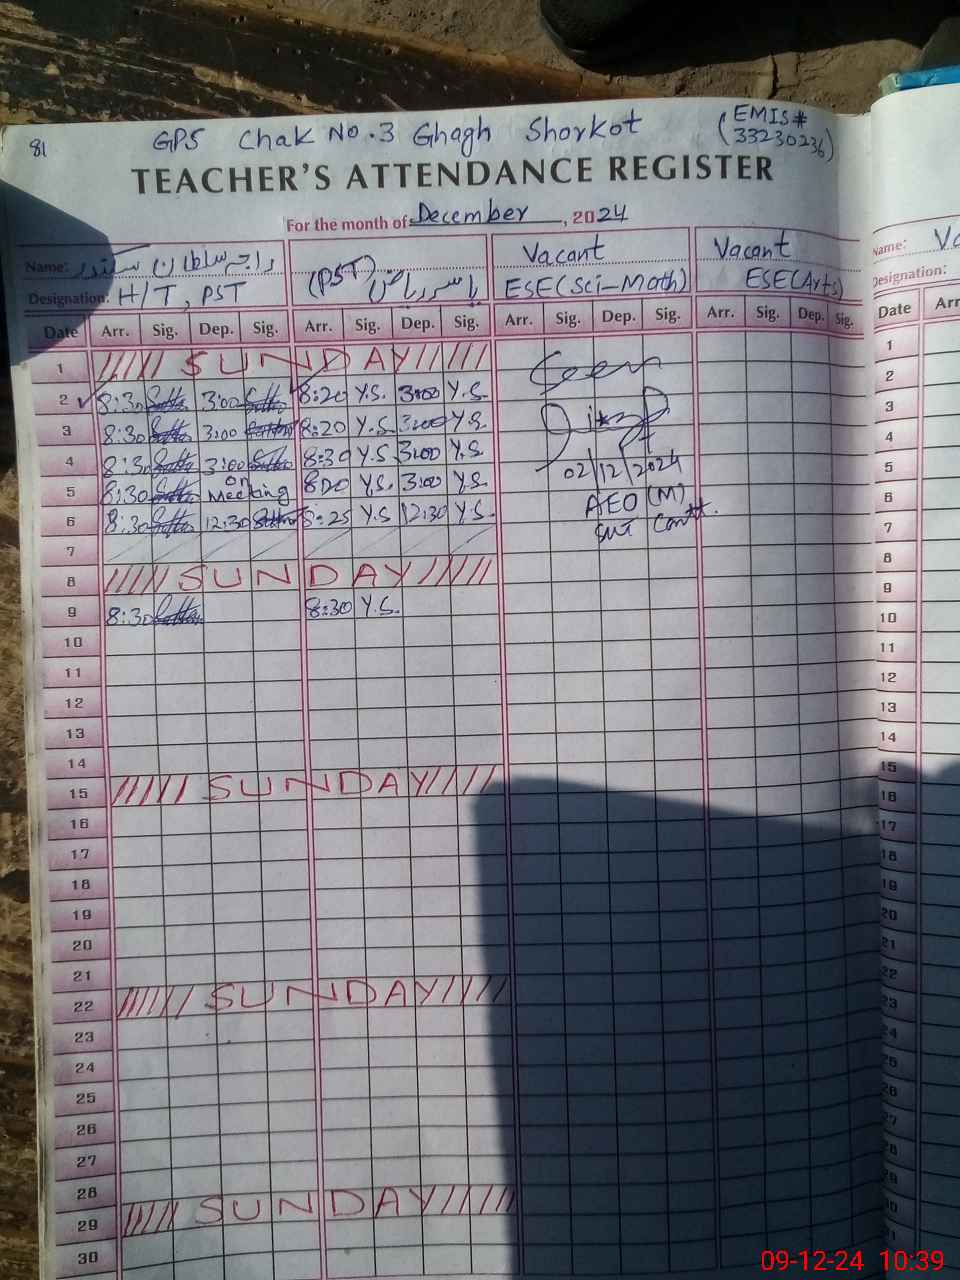 81 GPS Chak No.3 Ghagh Shorkot (EMIS# 33230236)
TEACHER'S ATTENDANCE REGISTER
For the month of December, 2024
Name: Vacant Vacant
Designation: H/T, PST (PST) یاسر ریاض ESE(Sci-Math) ESE(Arts)
Date Arr. Sig. Dep. Sig. Arr. Sig. Dep. Sig. Arr. Sig. Dep. Sig. Arr. Sig. Dep. Sig.
1 SUNDAY Seen
2 8:30 3:00 8:20 Y.S. 3:00 Y.S.
3 8:30 3:00 8:20 Y.S 3:00 Y.S.
4 8:30 3:00 8:30 Y.S 3:00 Y.S. 02/12/2024
5 8:30 on Meeting 8:20 Y.S. 3:00 Y.S. AEO (M)
6 8:30 12:30 8:25 Y.S 12:30 Y.S.
7
8 SUNDAY
9 8:30 8:30 Y.S.
10
11
12
13
14
15 SUNDAY
16
17
18
19
20
21
22 SUNDAY
23
24
25
26
27
28
29 SUNDAY
30
Name:
Designation:
Date Arr
1
2
3
4
5
6
7
8
9
10
11
12
13
14
15
16
17
18
19
20
21
22
23
24
25
26
27
28
29
30
09-12-24 10:39